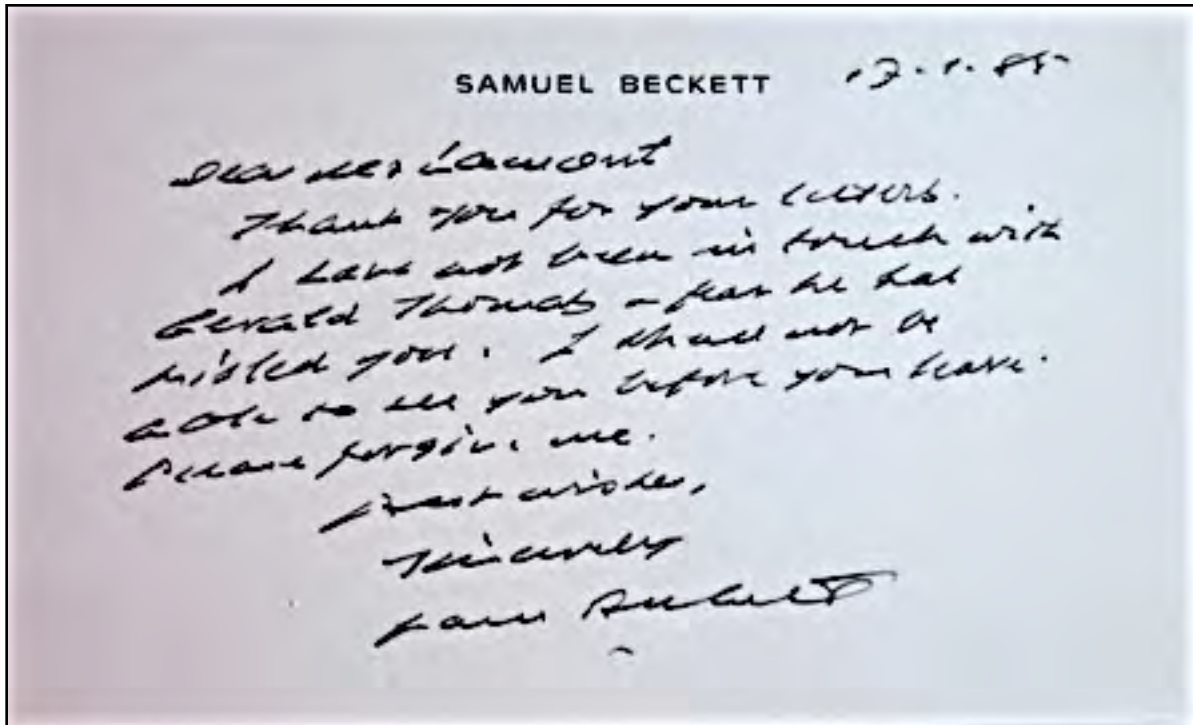 SAMUEL BECKETT
Dear Lamont
Thank you for your letters.
I have not been in touch with
Gerald Thomas - fear he has
misled you. I shall not be
able to see you before you leave.
Please forgive me.
Best wishes,
Sincerely
Sam Beckett